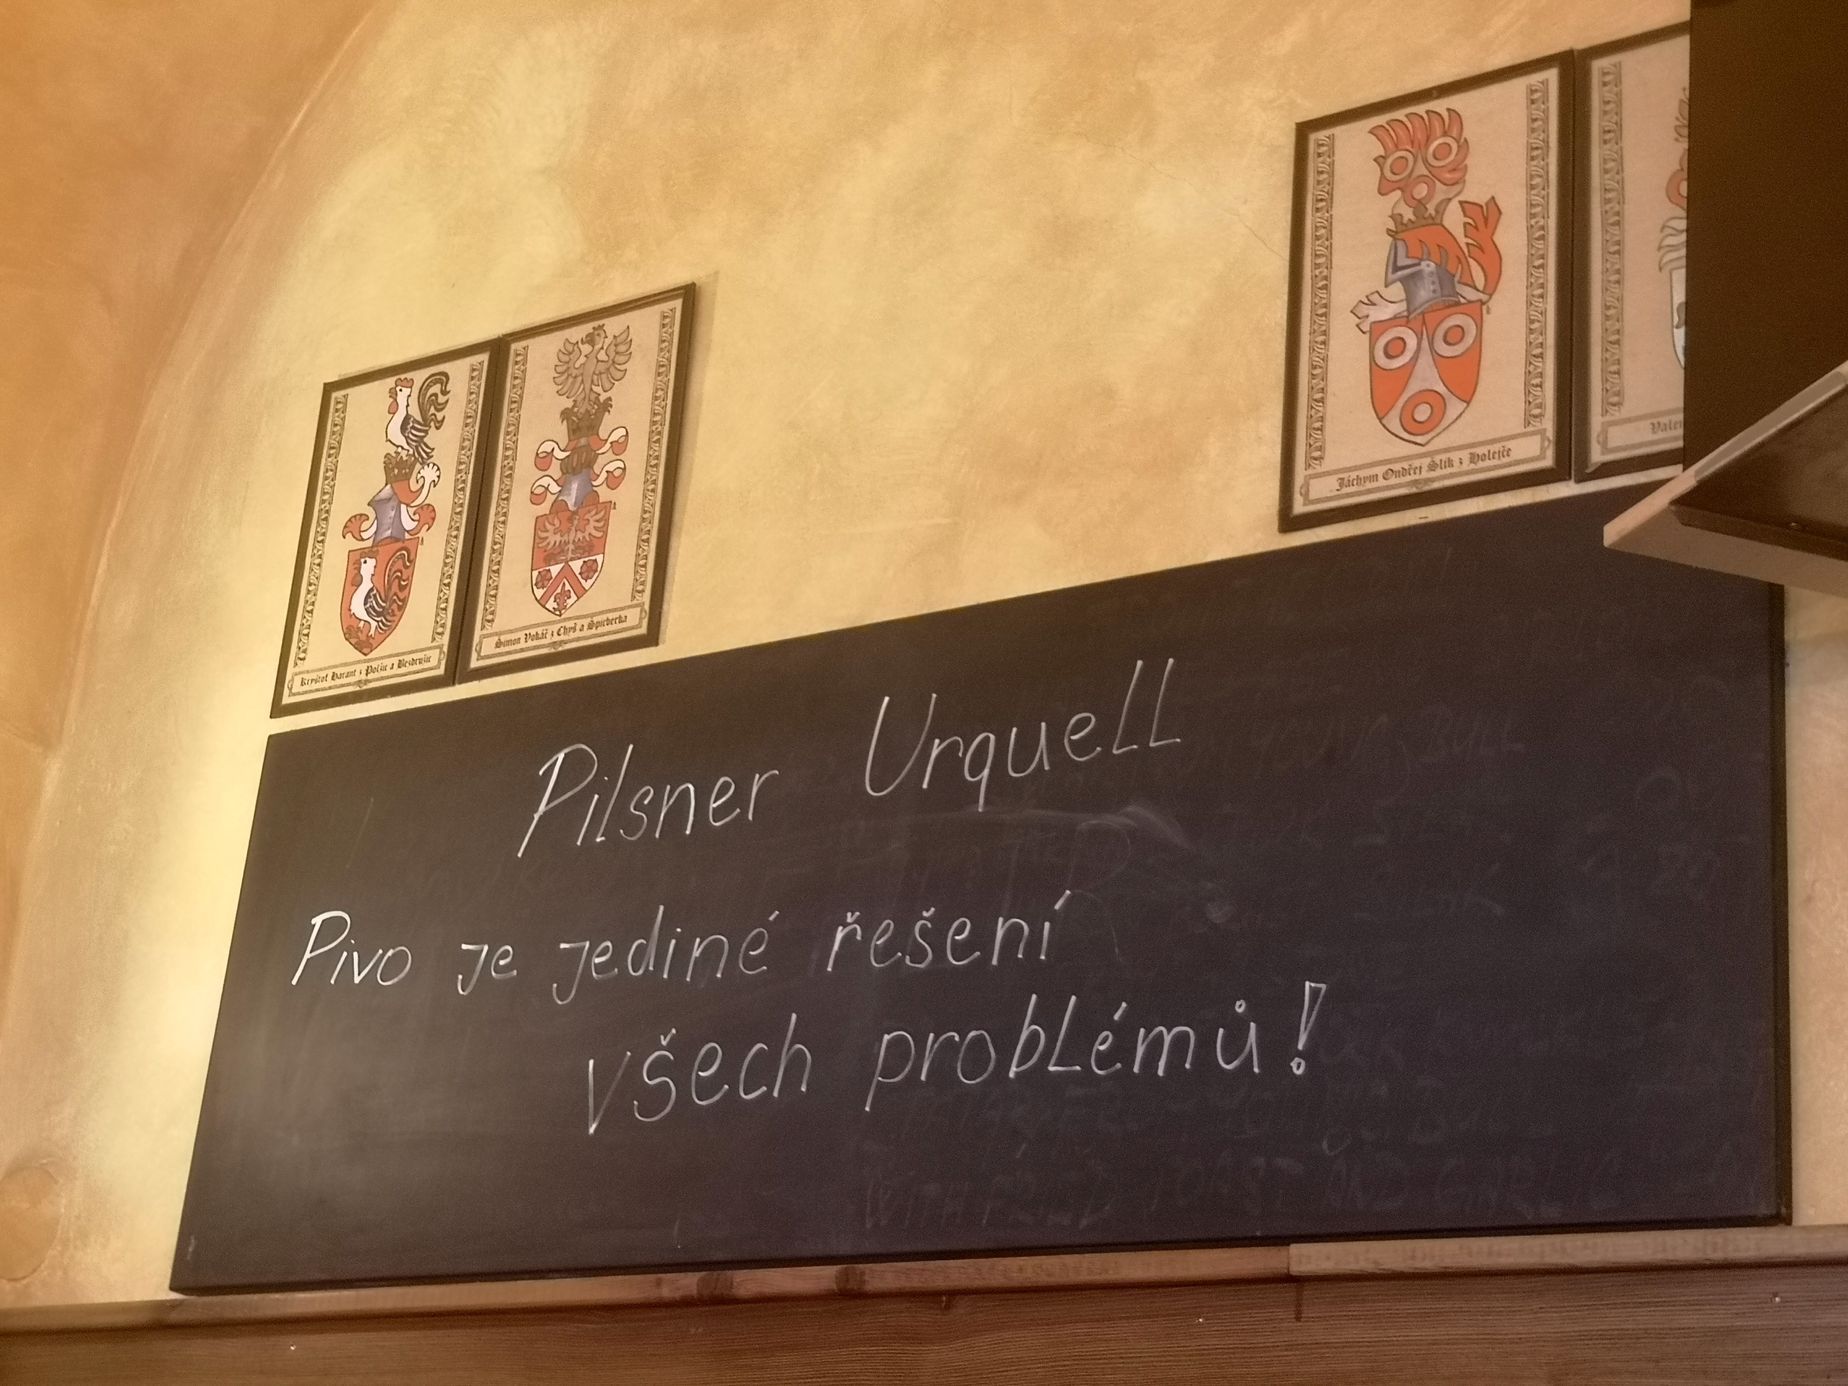 Kryštof Harant z Polžic a Bezdružic
Šimon Vokáč z Chyš a Špicberka
Jáchym Ondřej Šlik z Holejče
Pilsner Urquell
Pivo je jediné řešení
všech problémů!
YOUNG BULL
WITH FRIED TOAST AND GARLIC